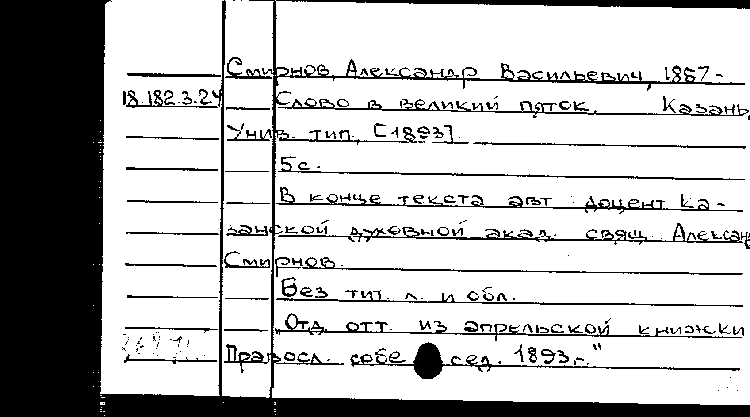 Смирнов, Александр Васильевич, 1857-
18.182.3.24 Слово в великий пяток. Казань,
Унив. тип., [1893]
5с.
В конце текста авт : доцент Ка-
занской духовной акад. свящ. Александ
Смирнов.
Без тит. л. и обл.
„Отд. отт. из апрельской книжки
Правосл. собесед. 1893.-"